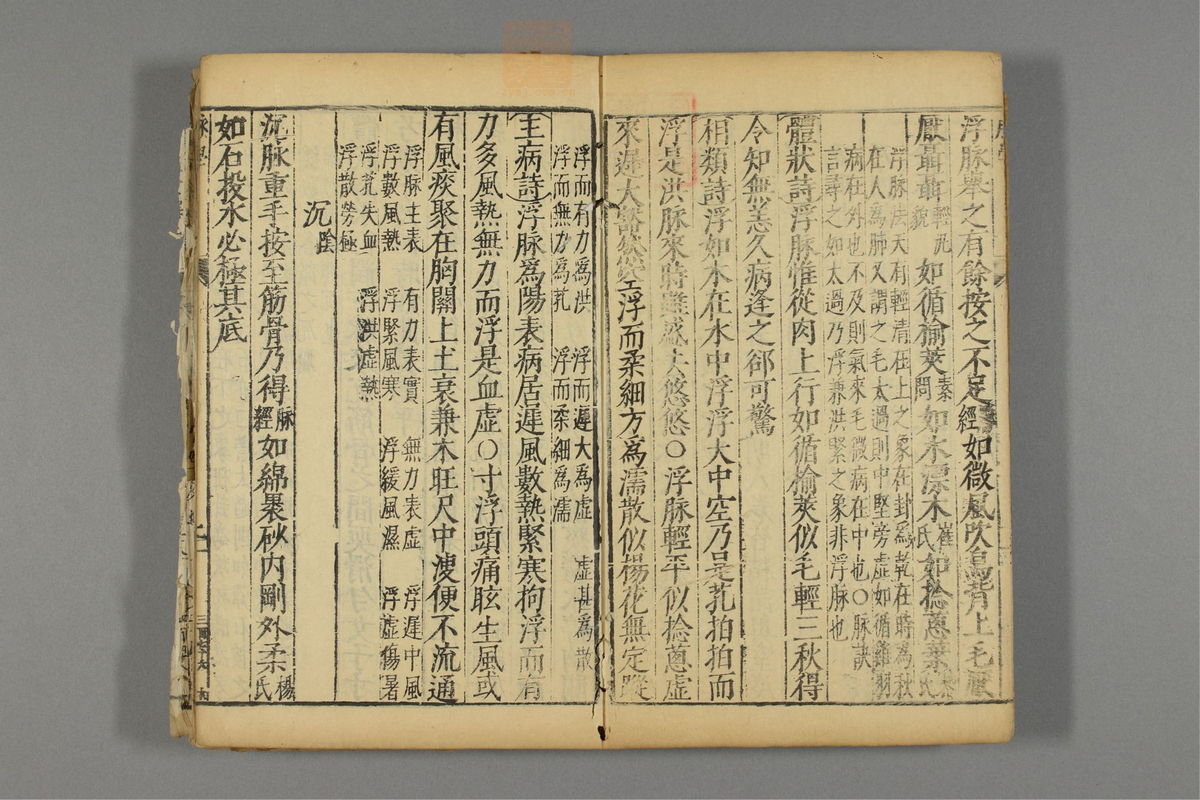 浮脉舉之有餘按之不足經如微風吹鳥背上毛厭
厭聶聶輕汎貌如循榆莢素問如水漂木崔氏如捻蔥葉黎氏
浮脉法天有輕清在上之象在卦爲乾在時爲秋
在人爲肺又謂之毛太過則中堅旁虛如循雞羽
病在外也不及則氣來毛微病在中也○脉訣
言尋之如太過乃浮兼洪緊之象非浮脉也
體狀詩浮脉惟從肉上行如循榆莢似毛輕三秋得
令知無恙久病逢之郤可驚
相類詩浮如木在水中浮浮大中空乃是芤拍拍而
浮是洪脉來時雖盛去悠悠○浮脉輕平似捻蔥虛
來遲大豁然空浮而柔細方爲濡散似楊花無定蹤
浮而有力爲洪 浮而遲大爲虛 虛甚爲散
浮而無力爲芤 浮而柔細爲濡
主病詩浮脉爲陽表病居遲風數熱緊寒拘浮而有
力多風熱無力而浮是血虛○寸浮頭痛眩生風或
有風痰聚在胸關上土衰兼木旺尺中溲便不流通
浮脉主表 有力表實 無力表虛 浮遲中風
浮數風熱 浮緊風寒 浮緩風濕 浮虛傷暑
浮芤失血 浮洪虛熱
浮散勞極
沉陰
沉脉重手按至筋骨乃得脉經如綿裹砂內剛外柔楊氏
如石投水必極其底
脉學